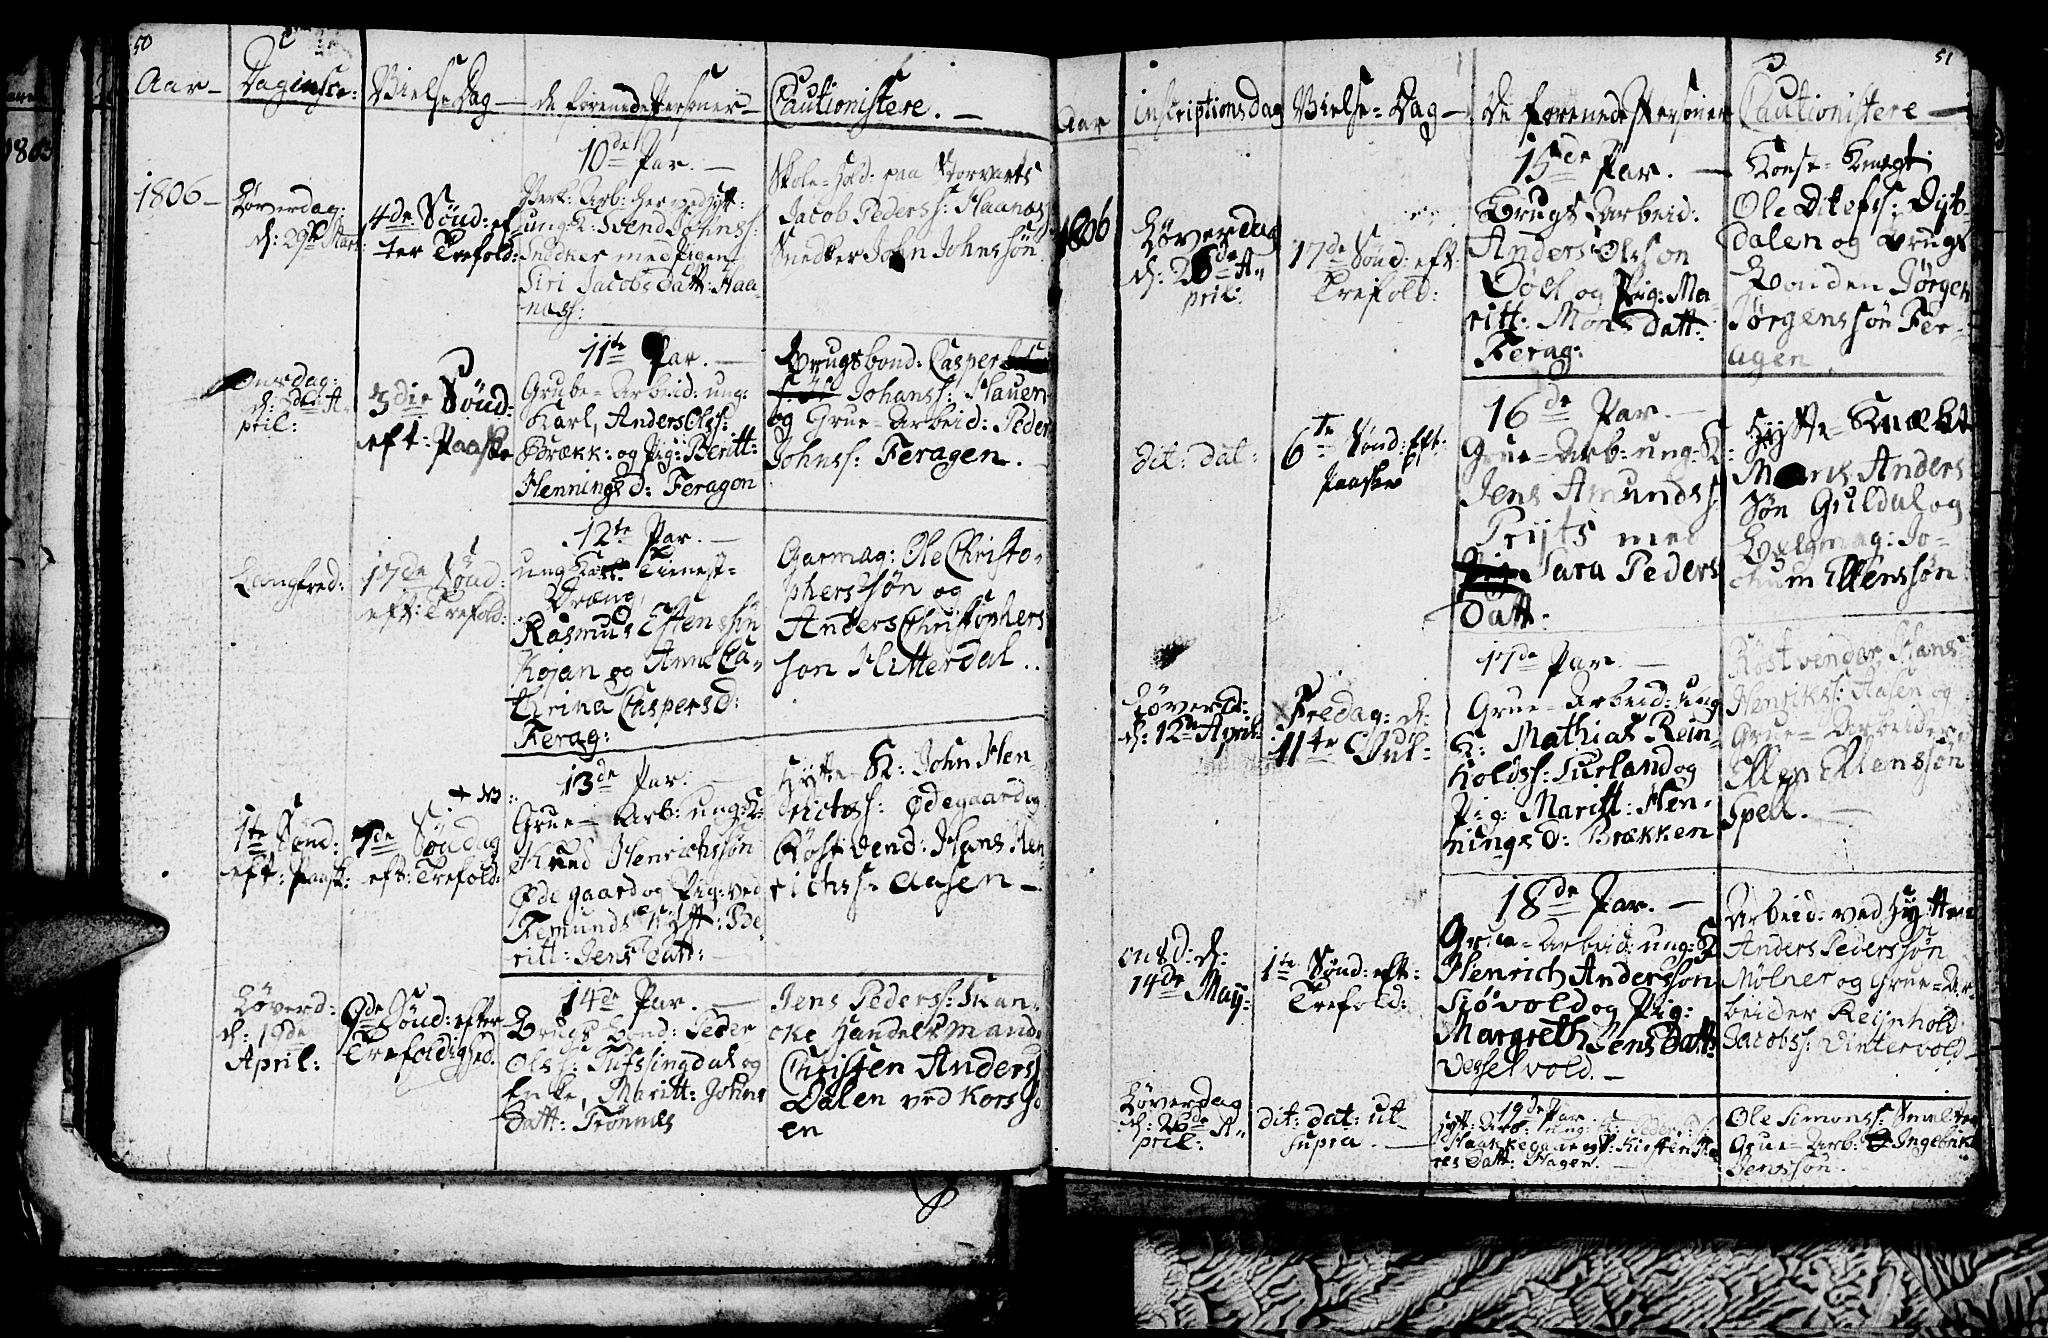 50
Aar –
Daginscr:
Vielse Dag –
de forenede Personer –
Cautionistere. –
1806 –
Løverdag:
d: 29de Marti
4de Sönd: ef-
ter Trefold:
10de Par. –
ung: K: Svend Johnss:
Snedker med Pigen
Siri Jacobs Datt: Haa-
næss:
Skole-Hold: paa Storvarts
Jacob Pederss: Haanæs
Snedker John Johnssön
Onsdag:
d: 2de A-
pril:
3die Sönd:
eft: Paaske
11te Par. –
Grube-Arbeid: ung:
Karl, Anders Olss:
Brækk: og Pig: Beritt:
Hennings d: Feragen
Brugsbond: Casper
Johanss: Hauen
og Grue-Arbeid: Peder
Johnss: Feragen. –
Langfred:
17de Sönd:
eft: Trefold:
12te Par. –
ung Karl Tienest-
Dræng,
Rasmus Estenssön
Kojan og Anne Ca-
thrina Caspers d:
Ferag:
Garmag: Ole Christo-
pherssøn og
Anders Christophers
søn Hitterdal..
1te Sönd:
eft: Paask:
7de Söndag
eft: Trefold:
13de Par. –
Grue-Arb: ung: K:
Knud Henrichssøn
Ødegaard og Pig: ved
Femunds Hytt: Be-
ritt: Jens Datt:
Hytte K: John Hen
richss: Ødegaard og
Röstvend: Hans Hen
richss: Aasen –
Løverd:
d: 19de
April:
9de Sönd: efter
Trefoldighed.
14de Par. –
Brugs Bond: Peder
Olss: Tufssingdal og
Enke, Maritt: Johns
Datt: Trönnes
Jens Pederss: Skan-
cke Handelsmand
Christen Anderss
Dalen ved Kors Gd
en
51
Aar
Inscriptionsdag
Vielse-Dag –
De forenede Personer
Cautionistere –
1806
Løverdag
d: 26de A-
pril:
17de Sönd: eft
Trefold:
15de Par. –
Brugs Arbeid:
Anders Olsson
Döel og Pig: Ma-
ritt: Mons datt:
Ferag:
Horse-Knegt
Ole Ditefs: Dyb-
dalen og Brugs
Bonden Jørgen
Jørgenssön Fer-
agen
dit: dat:
6te Sönd: Eft:
Paaske
16de Par. –
Grue-Arb: ung: K:
Jens Amundss:
Prijts med
Sara Peders
Datt:
Hytte-Knækt
Marks Anders
søn Guldal og
Bælgmag: Jo-
chum Ellenssøn
Løverd:
d: 12de April
Fredag: d:
11te Jul:
17de Par. –
Grue-Arbeid: ung
K: Mathias Rein-
holdss: Surland og
Pig: Maritt: Hen-
nings d: Brækken
Röstvender Hans
Henrikss: Aasen og
Grue-Arbeider
Ellen Ellenssøn
Spell. –
Onsd: d:
14de Maij:
1te Sönd: eft:
Trefold:
18de Par. –
Grue-Arbeid: ung: K
Henrich Anderssøn
Siövold og Pig:
Margreth Jens Datt:
Vesselvold. –
Arbeid: ved Hytten
Anders Pederssøn
Mölner og Grue-Ar-
beider Reijnhold
Jacobss: Vintervold
Løverdag
d: 26de A-
pril:
dit: dat: ut
supra. –
19de Par
Hytt: Arb: ung: K: Peder
res Datt: Hagen. –
Ole Simonss: Smelter
Grue-Arb: Ingebrikt
Jenssøn.